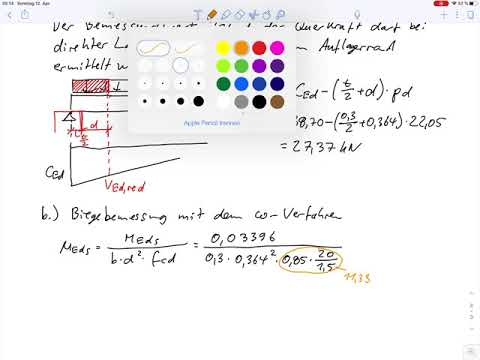 20:14 Sonntag 12. Apr.
92 %
Der Bemessungswert der Querkraft darf bei
direkter La am Auflagerrand
ermittelt w
Apple Pencil trennen
d
t/2
CEd - (t/2 + d) · pd
38,70 - (0,3/2 + 0,364) · 22,05
= 27,37 kN
CEd
VEd,red
b.) Biegebemessung mit dem ω-Verfahren
μEds = MEds / b·d²·fcd = 0,03396 / 0,3·0,364²·0,85·20/1,5
11,33